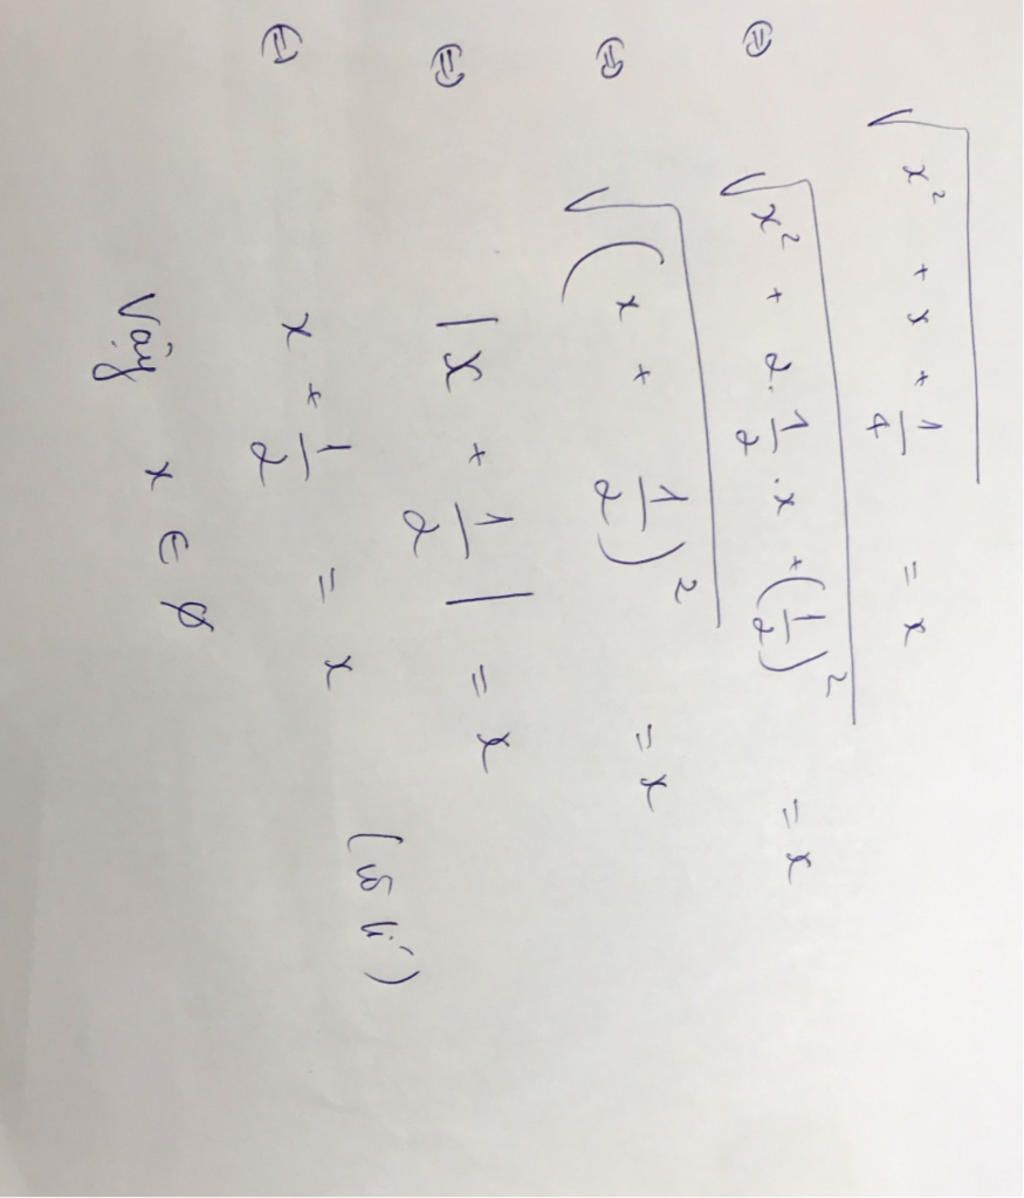 √(x² + x + 1/4) = x
⇔ √(x² + 2.1/2.x + (1/2)²) = x
⇔ √((x + 1/2)²) = x
⇔ |x + 1/2| = x
⇔ x + 1/2 = x (vô lí)
Vậy x ∈ ∅